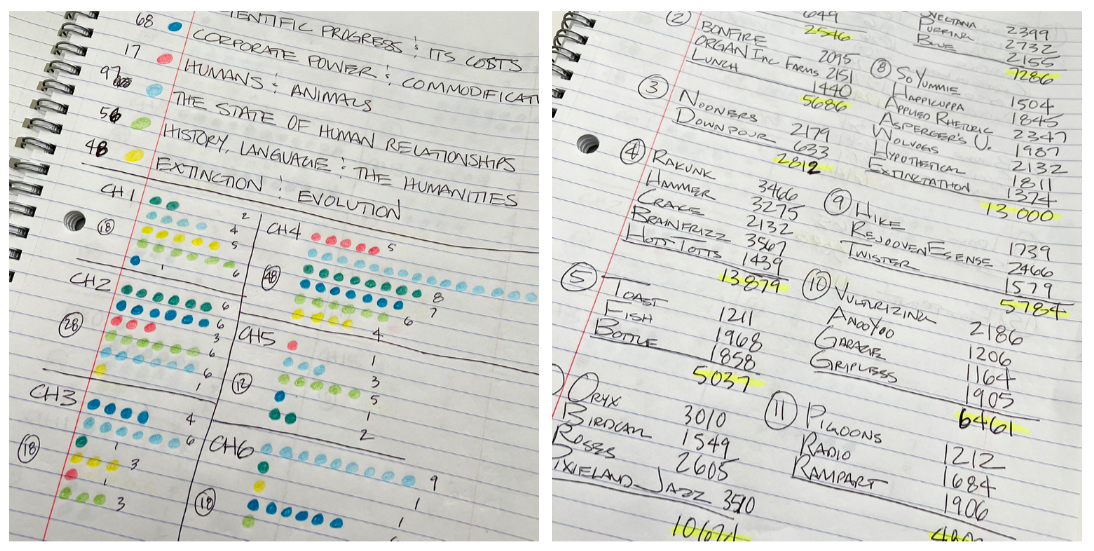 68 SCIENTIFIC PROGRESS & ITS COSTS
17 CORPORATE POWER & COMMODIFICATI
HUMANS & ANIMALS
THE STATE OF HUMAN RELATIONSHIPS
48 HISTORY, LANGUAGE & THE HUMANITIES
EXTINCTION & EVOLUTION
CH1
18
2
4
5
6
1
CH2
28
6
6
3
6
6
1
CH3
18
4
6
1
3
1
3
CH4
48
5
8
7
6
4
CH5
12
1
3
5
1
2
CH6
18
9
1
1
2
649
2546
BONFIRE 2095
ORGAN INC FARMS 2151
LUNCH 1440
5686
3 NOONERS 2179
DOWNPOUR 633
2812
4 RAKUNK 3466
HAMMER 3275
CRAKE 2132
BRAINFRIZZ 3567
HOTTTOTTS 1439
13879
5 TOAST 1211
FISH 1968
BOTTLE 1858
5037
ORYX 3010
BIRDCALL 1549
ROSES 2605
IXIELAND JAZZ 3510
10674
SVELTANA 2399
PURRING 2732
BLUE 2155
7286
8 SOYUMMIE 1504
HAPPICUPPA 1845
APPLIED RHETORIC 2347
ASPERGER'S U. 1987
WOLVOGS 2132
HYPOTHETICAL 1811
EXTINCTATHON 1374
13 000
9 HIKE 1739
REJOOVENESENSE 2466
TWISTER 1579
5784
10 VULTURIZING 2186
ANOOYOO 1206
GARAGE 1164
GRIPLESS 1905
6461
11 PIGOONS 1212
RADIO 1684
RAMPART 1906